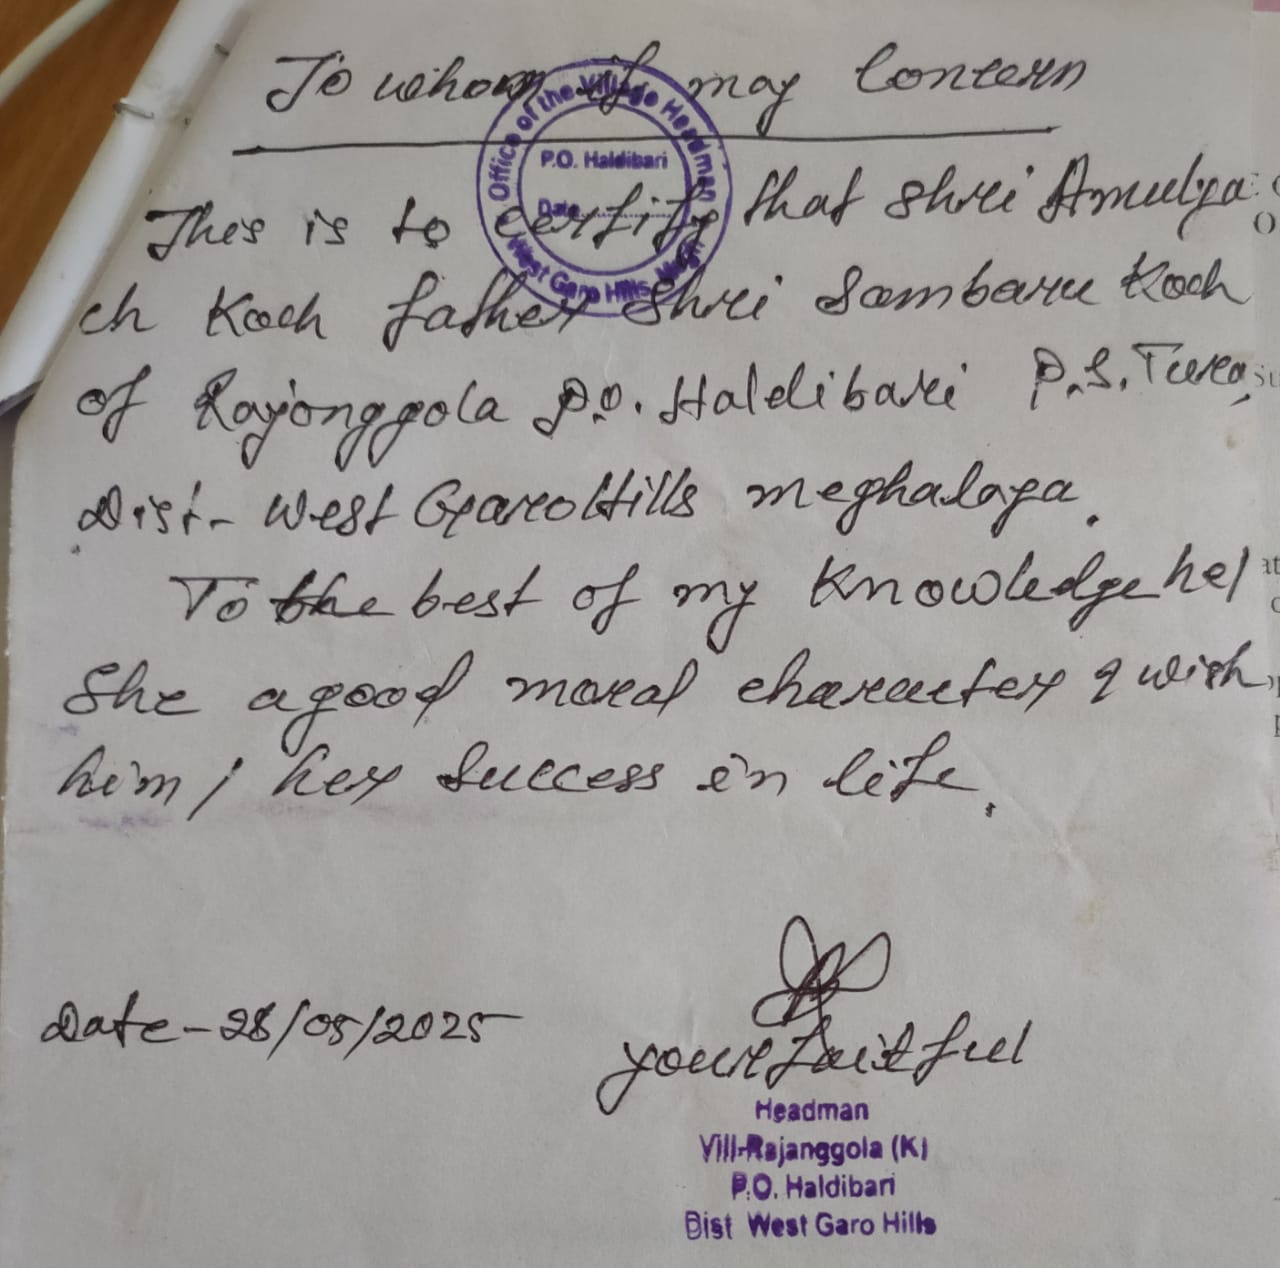 To whom if may Concern
Office of the Village Headman
P.O. Haldibari
Date
West Garo Hills, Megh
This is to certify that Shri Amulya
ch Koch father Shri Sambaru Koch
of Rajonggola P.O. Haldibari P.S. Tura,
Dist- West Garo Hills meghalaya.
To the best of my Knowledge he/
She a good moral character & wish
him / her Success in life.
Date - 28/05/2025
your faitful
Headman
Vill-Rajanggola (K)
P.O. Haldibari
Dist West Garo Hills